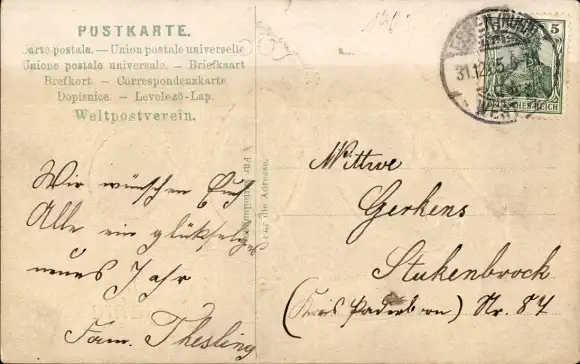 POSTKARTE.
Carte postale. – Union postale universelle
Unione postale universale. – Briefkaart
Brefkort. – Correspondenzkarte
Dopisnice. – Levelező-Lap.
Weltpostverein.
Wir wünschen Euch
Alle ein glückseliges
neues Jahr
Fam. Thesling
Für die Adresse.
5
31.12.
DEUTSCHES REICH
Wittwe
Gerkens
Stukenbrock
(Kreis Paderborn) Nr. 87